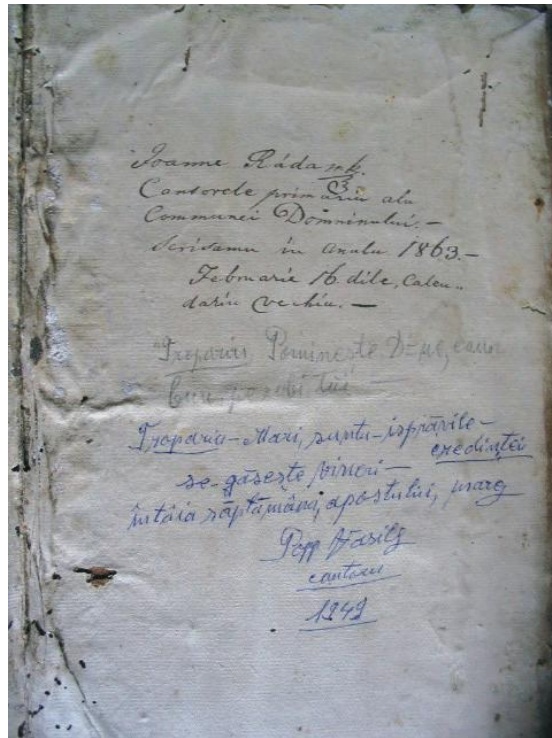 Ioanne Ráda mk.
Cantorele primariu alu
Communei Domninului. —
Scrisamu in anulu 1863. —
Februarie 16. dile, Calen„
dariu vechiu. —
Tropariu Pomineşte D-ne, ca un
bun, pe robii tăi —
Tropariu - Mari, suntu - isprăvile -
credinţei
se - găseşte vineri -
întâia săptămâna, apostului, mare
Popp Vasile
cantoru
1949